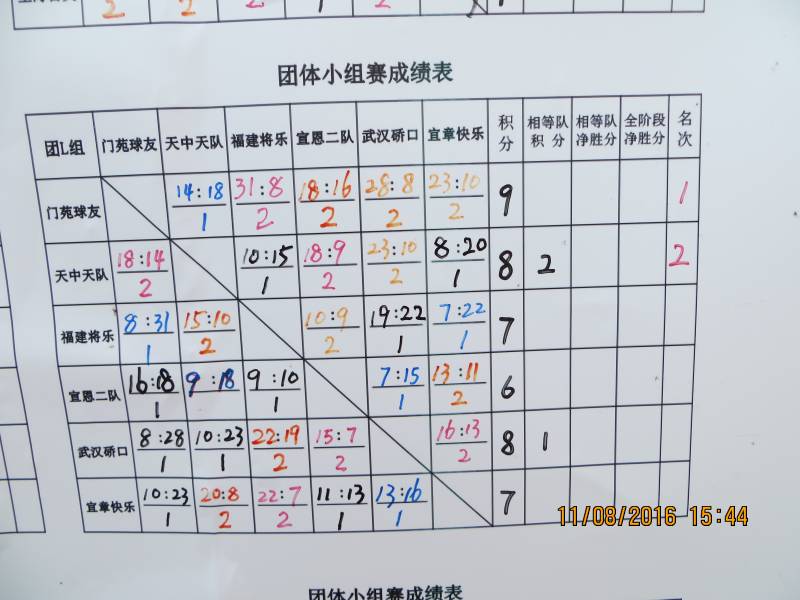 2 2 2 1 2
团体小组赛成绩表
团L组 门苑球友 天中天队 福建将乐 宣恩二队 武汉硚口 宜章快乐 积分 相等队积分 相等队净胜分 全阶段净胜分 名次
门苑球友 14:18 31:8 18:16 28:8 23:10 9 1
1 2 2 2 2
天中天队 18:14 10:15 18:9 23:10 8:20 8 2 2
2 1 2 2 1
福建将乐 8:31 15:10 10:9 19:22 7:22 7
1 2 2 1 1
宣恩二队 16:18 9:18 9:10 7:15 13:11 6
1 1 1 2
武汉硚口 8:28 10:23 22:19 15:7 16:13 8 1
1 1 2 2 2
宜章快乐 10:23 20:8 22:7 11:13 13:16 7
1 2 2 1 1
11/08/2016 15:44
团体小组赛成绩表